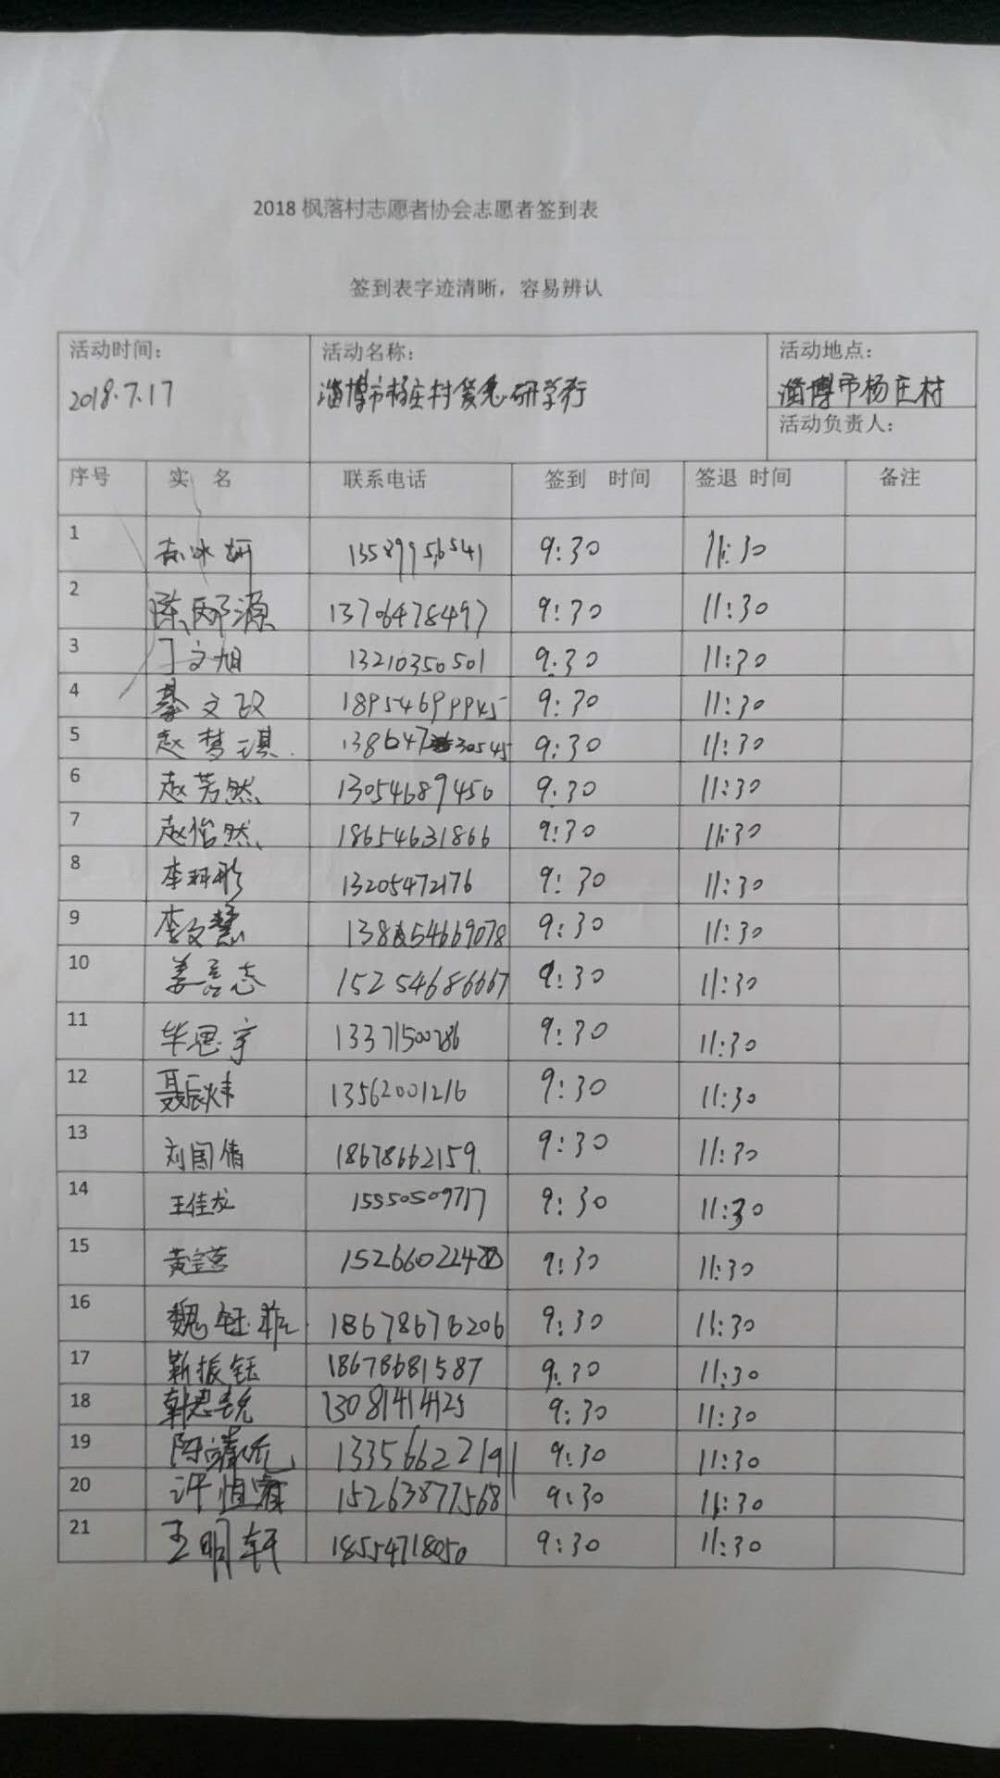 2018 枫落村志愿者协会志愿者签到表
签到表字迹清晰，容易辨认
活动时间： 活动名称： 活动地点：
2018.7.17 淄博市杨庄村 研学行 淄博市杨庄村
活动负责人：
序号 实 名 联系电话 签到 时间 签退 时间 备注
1 冰妍 13589956541 9:30 11:30
2 陈邴源 13706478497 9:30 11:30
3 丁文旭 13210350501 9:30 11:30
4 綦文 9:30 11:30
5 赵梦琪 9:30 11:30
6 赵芳然 13054689450 9:30 11:30
7 赵怡然 18654631866 9:30 11:30
8 李珂彤 13205472176 9:30 11:30
9 李文慧 9:30 11:30
10 姜嘉志 15254686667 9:30 11:30
11 毕思宇 13371500786 9:30 11:30
12 聂辰炜 13562001216 9:30 11:30
13 刘闰倩 18678662159 9:30 11:30
14 王佳龙 15550509717 9:30 11:30
15 黄 9:30 11:30
16 魏钰菲 18678676206 9:30 11:30
17 靳振钰 18678681587 9:30 11:30
18 韩思 13081414125 9:30 11:30
19 陈 13356622191 9:30 11:30
20 许恒睿 15263877568 9:30 11:30
21 王明轩 18554718050 9:30 11:30